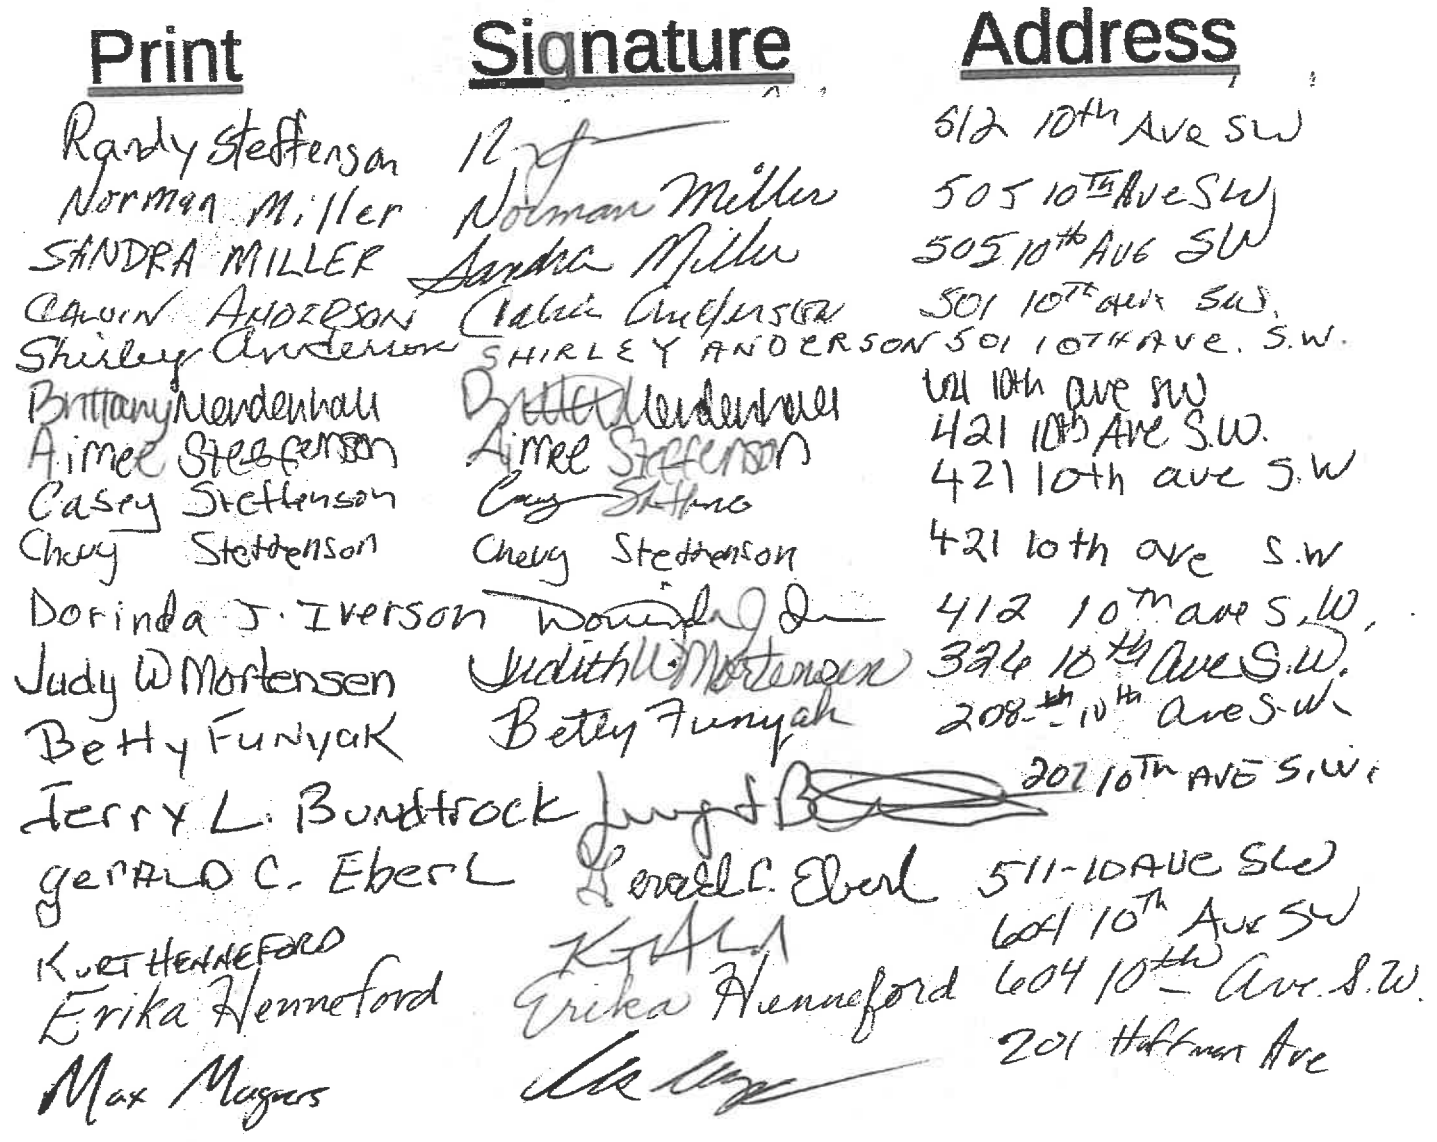 Print Signature Address
Randy Steffenson 512 10th Ave SW
Norman Miller Norman Miller 505 10TH Ave SW
SANDRA MILLER Sandra Miller 505 10th Ave SW
CALVIN ANDERSON Calvin Anderson 501 10TH Ave SW.
Shirley Anderson SHIRLEY ANDERSON 501 10TH AVE. S.W.
Brittany Mendenhall Mendenhall 10th ave SW
Aimee Steffenson Aimee Steffenson 421 10th Ave S.W.
Casey Steffenson Casey 421 10th ave S.W
Chevy Steffenson Chevy Steffenson 421 10th ave S.W
Dorinda J. Iverson Dorinda J 412 10TH ave S.W.
Judy W Mortensen Judith W. Mortensen 326 10th Ave S.W.
Betty Funyak Betty Funyak 208- 10th Ave S.W.
Jerry L. Bundtrock 207 10TH AVE S.W.
gerALD C. Eberl Gerald C. Eberl 511-10 AVE SW
KURT HENNEFORD 604 10Th Ave SW
Erika Henneford Erika Henneford 604 10th Ave. S.W.
Max Magnus 201 Hoffman Ave